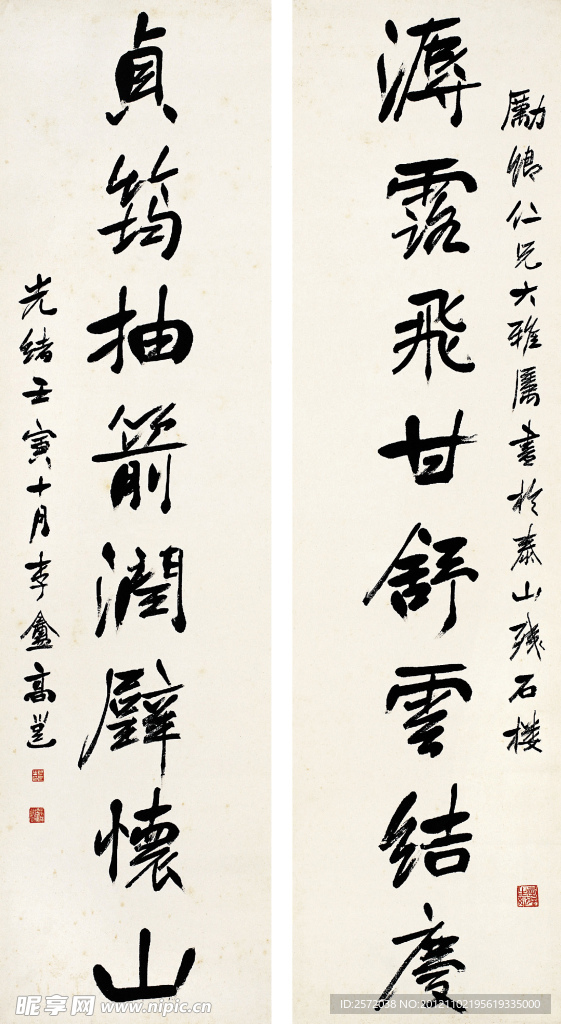 勵卿仁兄大雅屬書於泰山殘石樓
露飛甘舒雲結慶
貞筠抽箭潤璧懷山
光緒壬寅十月李盦高邕
昵享网 www.nipic.cn
ID:2572038 NO:20121102195619335000